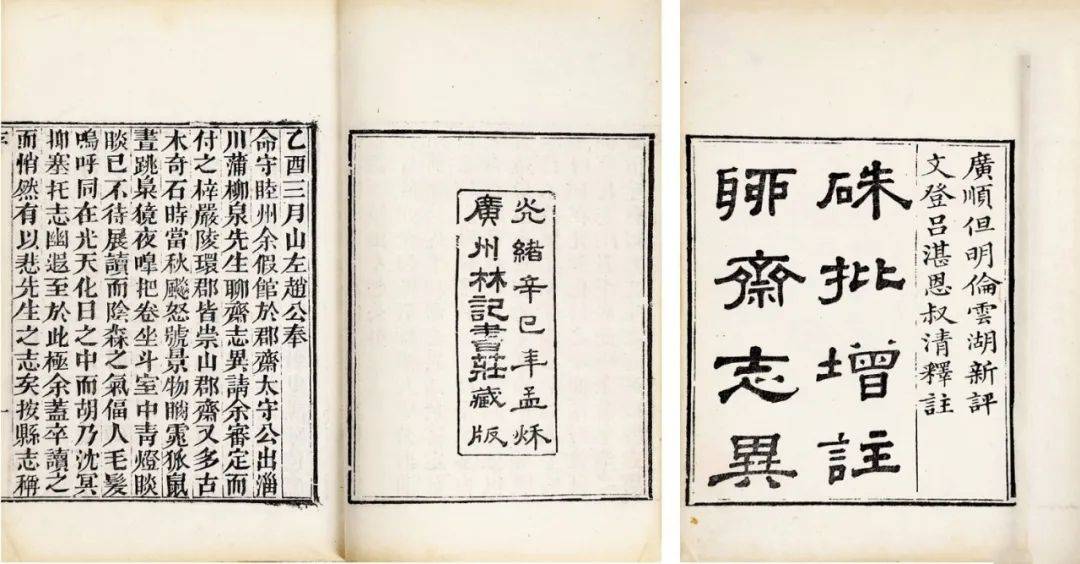 廣順但明倫雲湖新評
文登呂湛恩叔清釋註
硃批增註
聊齋志異
光緒辛巳年孟秌
廣州林記書莊藏版
乙酉三月山左趙公奉
命守睦州余假館於郡齋太守公出淄
川蒲柳泉先生聊齋志異請余審定而
付之梓嚴陵環郡皆崇山郡齋又多古
木奇石時當秋飈怒號景物睄窱狐鼠
晝跳梟獍夜嘷把卷坐斗室中青燈睒
睒已不待展讀而陰森之氣偪人毛髮
嗚呼同在光天化日之中而胡乃沈冥
抑塞托志幽遐至於此極余蓋卒讀之
而悄然有以悲先生之志矣按縣志稱